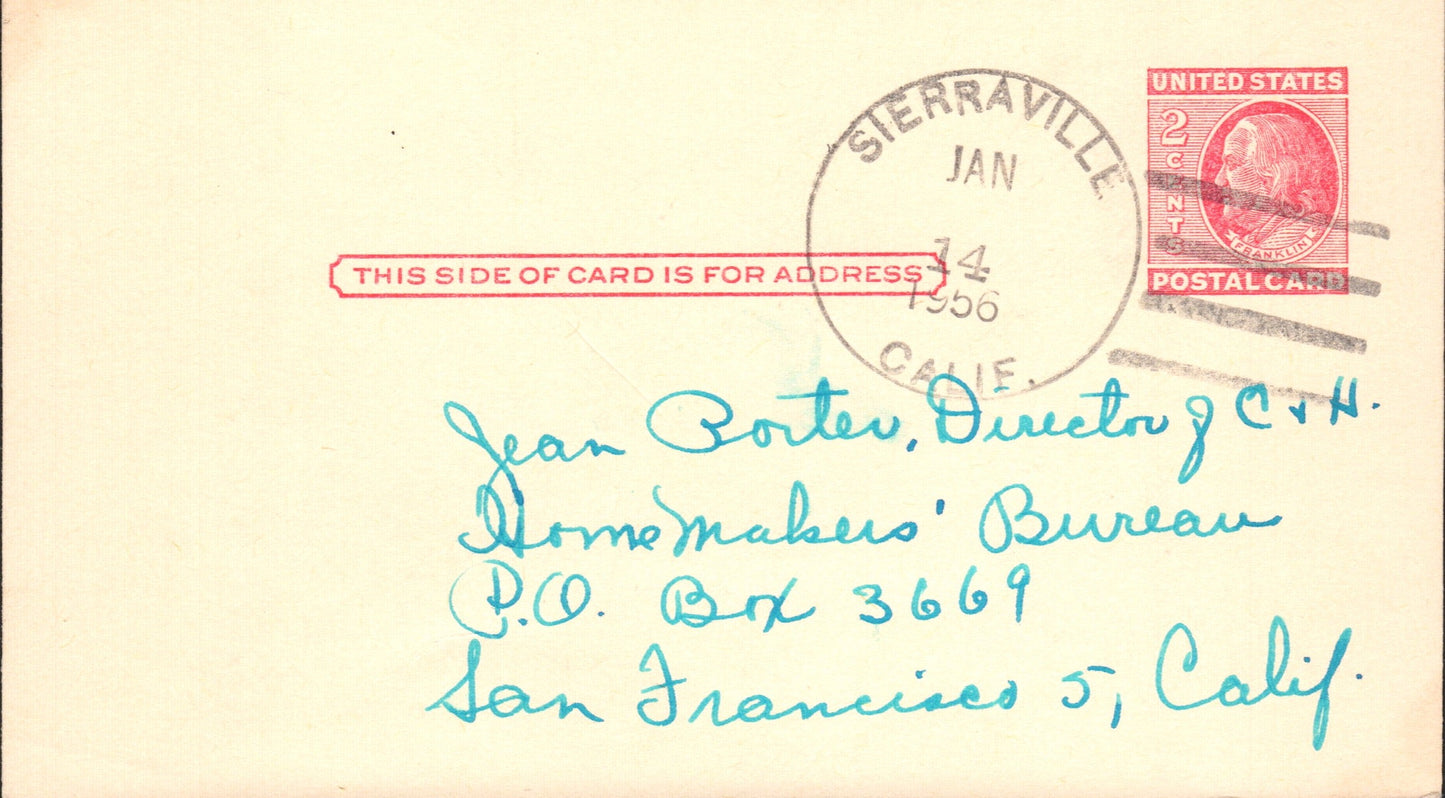 UNITED STATES
2 CENTS
FRANKLIN
POSTAL CARD
SIERRAVILLE
JAN
14
1956
CALIF.
THIS SIDE OF CARD IS FOR ADDRESS
Jean Porter, Director of C & H.
HomeMakers' Bureau
P.O. Box 3669
San Francisco 5, Calif.